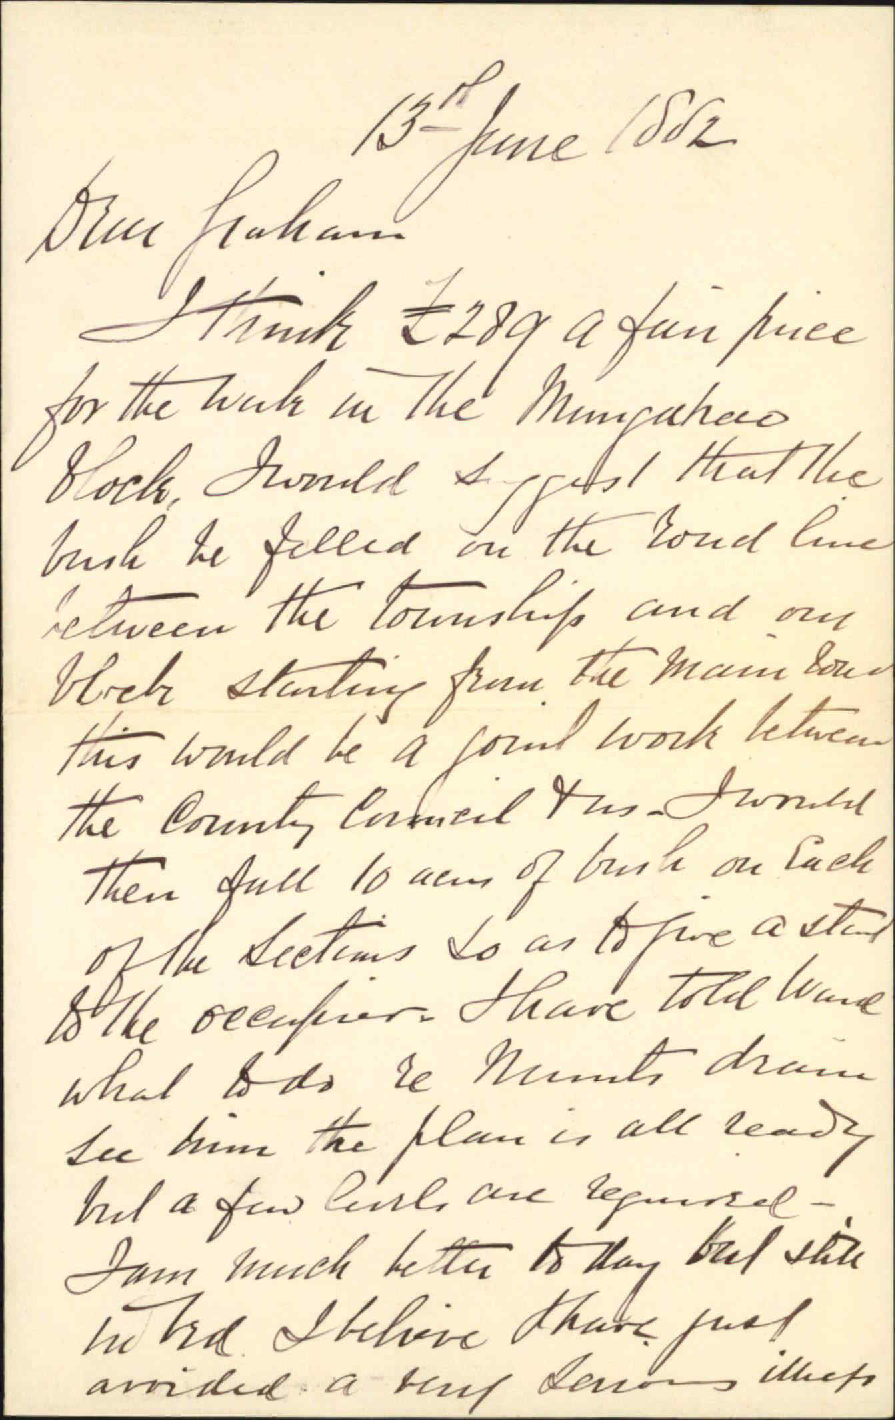 13th June 1882
Dear Graham
I think £289 a fair price
for the work in the Mungahao
block, I would suggest that the
bush be felled on the road line
between the township and our
block starting from the Main road
this would be a joint work between
the County Council & us - I would
then fall 10 acres of bush on Each
of the Sections so as to give a start
to the occupier - I have told Ward
what to do re drain
see him the plan is all ready
but a few levels are required -
I am much better to day but still
in bed. I believe I have just
avoided a very serious illness